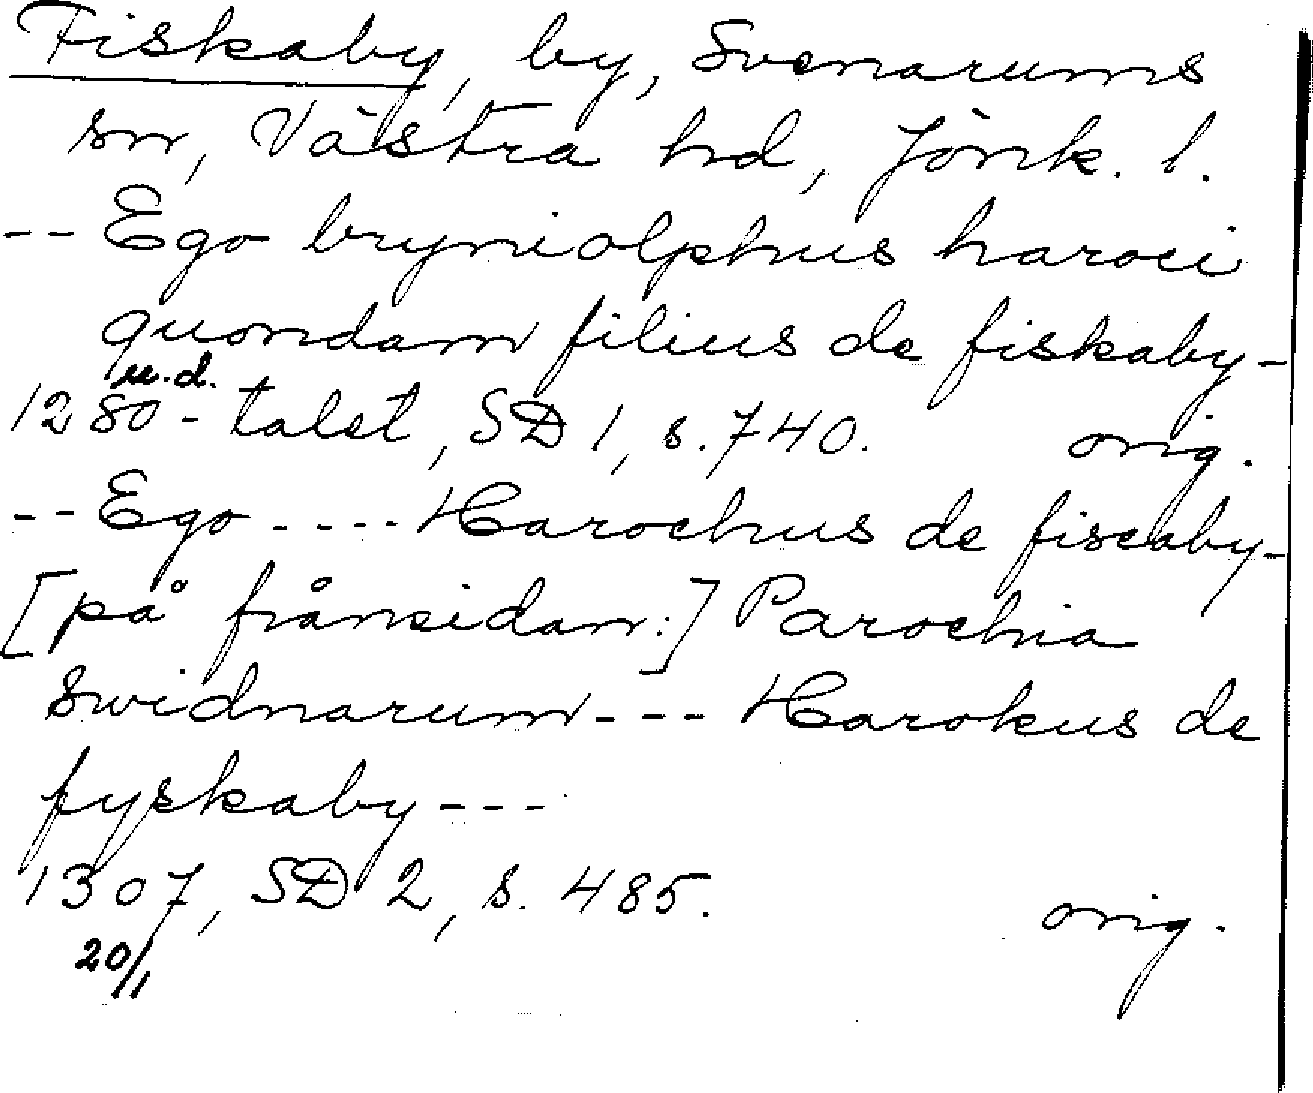 Fiskaby, by, Svenarums
sn, Västra hd, Jönk. l.
-- Ego bryniolphus haroci
quondam filius de fiskaby-
u.d.
1280-talet, SD 1, s. 740. orig.
-- Ego ---- Harochus de fiscaby-
[på frånsidan:] Parochia
swidnarum --- Harokus de
fyskaby ---
1307, SD 2, s. 485. orig.
20/1